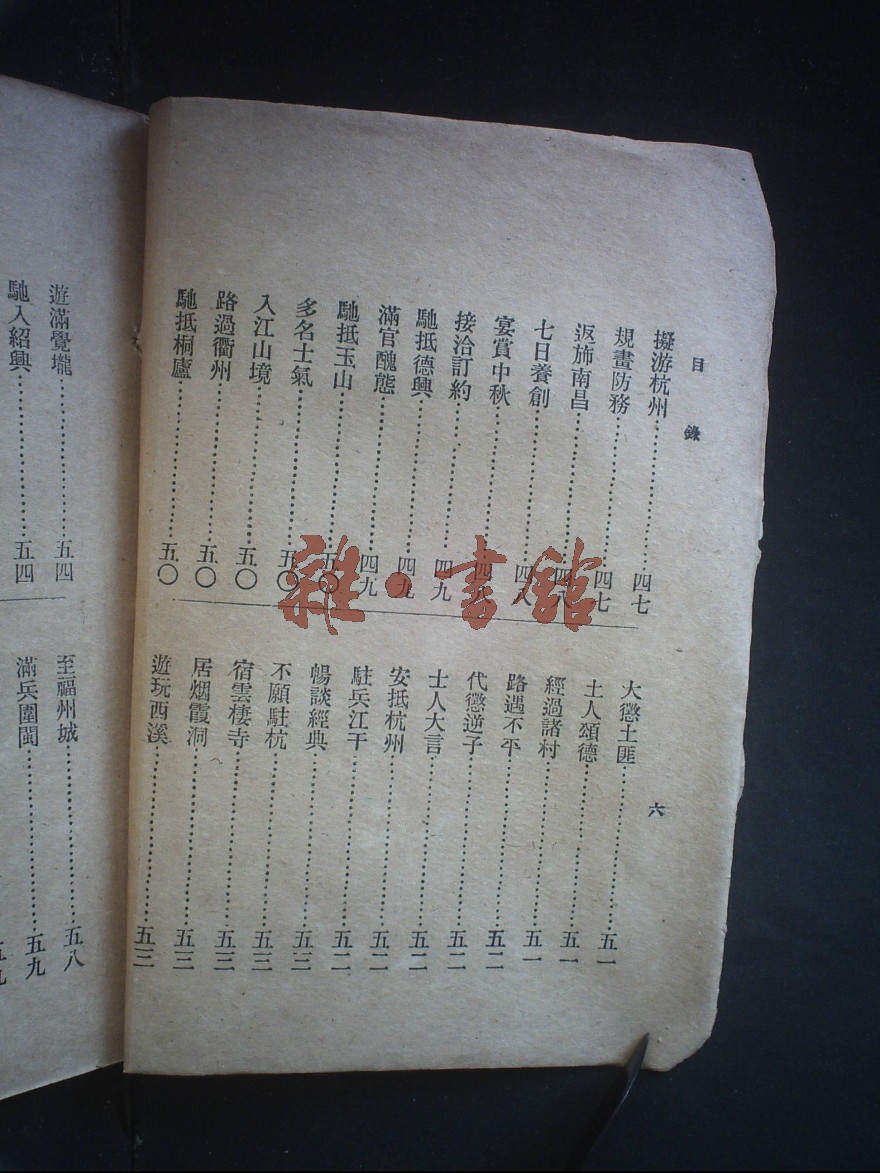 目錄
擬游杭州…………四七
規畫防務…………四七
返斾南昌…………四八
七日養創…………四八
宴賞中秋…………四八
接洽訂約…………四九
馳抵德興…………四九
滿官醜態…………四九
馳抵玉山…………五〇
多名士氣…………五〇
入江山境…………五〇
路過衢州…………五〇
馳抵桐廬…………五〇
六
大懲土匪…………五一
土人頌德…………五一
經過諸村…………五一
路遇不平…………五二
代懲逆子…………五二
士人大言…………五二
安抵杭州…………五二
駐兵江干…………五二
暢談經典…………五三
不願駐杭…………五三
宿雲棲寺…………五三
居烟霞洞…………五三
遊玩西溪…………五三
遊滿覺壠…………五四
馳入紹興…………五四
至福州城…………五八
滿兵圍閩…………五九
雜·書館